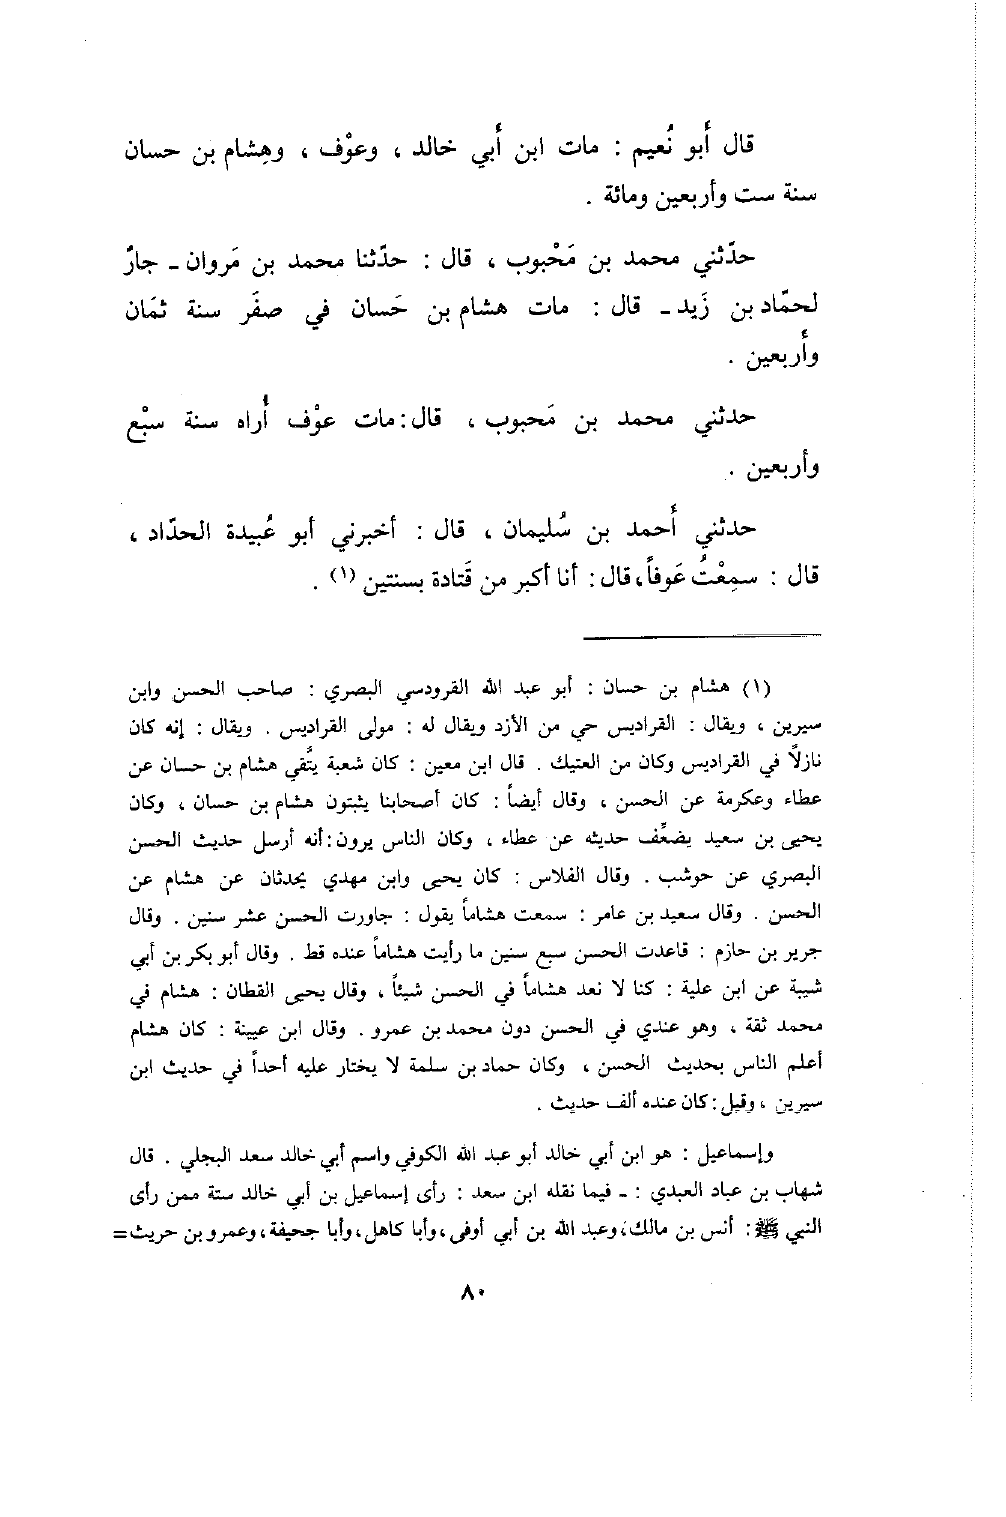 قال أَبو نُعيم : مات ابن أَبي خالد ، وعوْف ، وهِشام بن حسان
سنة ست وأربعين ومائة .
حدّثْني محمد بن مَحْبوب ، قال : حدّثنا محمد بن مَروان ـ جارٌ
لحمّاد بن زَيد ـ قال : مات هشام بن حَسان في صفَر سنة ثمَان
وأَربعين .
حدثني محمد بن مَحبوب ، قال : مات عوْف أُراه سنة سبْع
وأربعين .
حدثني أَحمد بن سُليمان ، قال : أخبرني أبو عُبيدة الحدّاد ،
قال : سمِعْتُ عَوفاً ، قال : أنا أكبر من قَتادة بسنتين (١) .
(١) هشام بن حسان : أبو عبد الله القردوسي البصري : صاحب الحسن وابن
سيرين ، ويقال : القراديس حي من الأزد ويقال له : مولى القراديس . ويقال : إنه كان
نازلاً في القراديس وكان من العتيك . قال ابن معين : كان شعبة يتَّقي هشام بن حسان عن
عطاء وعكرمة عن الحسن ، وقال أيضاً : كان أصحابنا يثبتون هشام بن حسان ، وكان
يحيى بن سعيد يضعِّف حديثه عن عطاء ، وكان الناس يرون : أنه أرسل حديث الحسن
البصري عن حوشب . وقال الفلاس : كان يحيى وابن مهدي يحدثان عن هشام عن
الحسن . وقال سعيد بن عامر : سمعت هشاماً يقول : جاورت الحسن عشر سنين . وقال
جرير بن حازم : قاعدت الحسن سبع سنين ما رأيت هشاماً عنده قط . وقال أبو بكر بن أبي
شيبة عن ابن علية : كنا لا نعد هشاماً في الحسن شيئاً ، وقال يحيى القطان : هشام في
محمد ثقة ، وهو عندي في الحسن دون محمد بن عمرو . وقال ابن عيينة : كان هشام
أعلم الناس بحديث الحسن ، وكان حماد بن سلمة لا يختار عليه أحداً في حديث ابن
سيرين ، وقيل : كان عنده ألف حديث .
وإسماعيل : هو ابن أبي خالد أبو عبد الله الكوفي واسم أبي خالد سعد البجلي . قال
شهاب بن عباد العبدي : ـ فيما نقله ابن سعد : رأى إسماعيل بن أبي خالد ستة ممن رأى
النبي ﷺ : أنس بن مالك ، وعبد الله بن أبي أوفى ، وأبا كاهل ، وأبا جحيفة ، وعمرو بن حريث =
٨٠